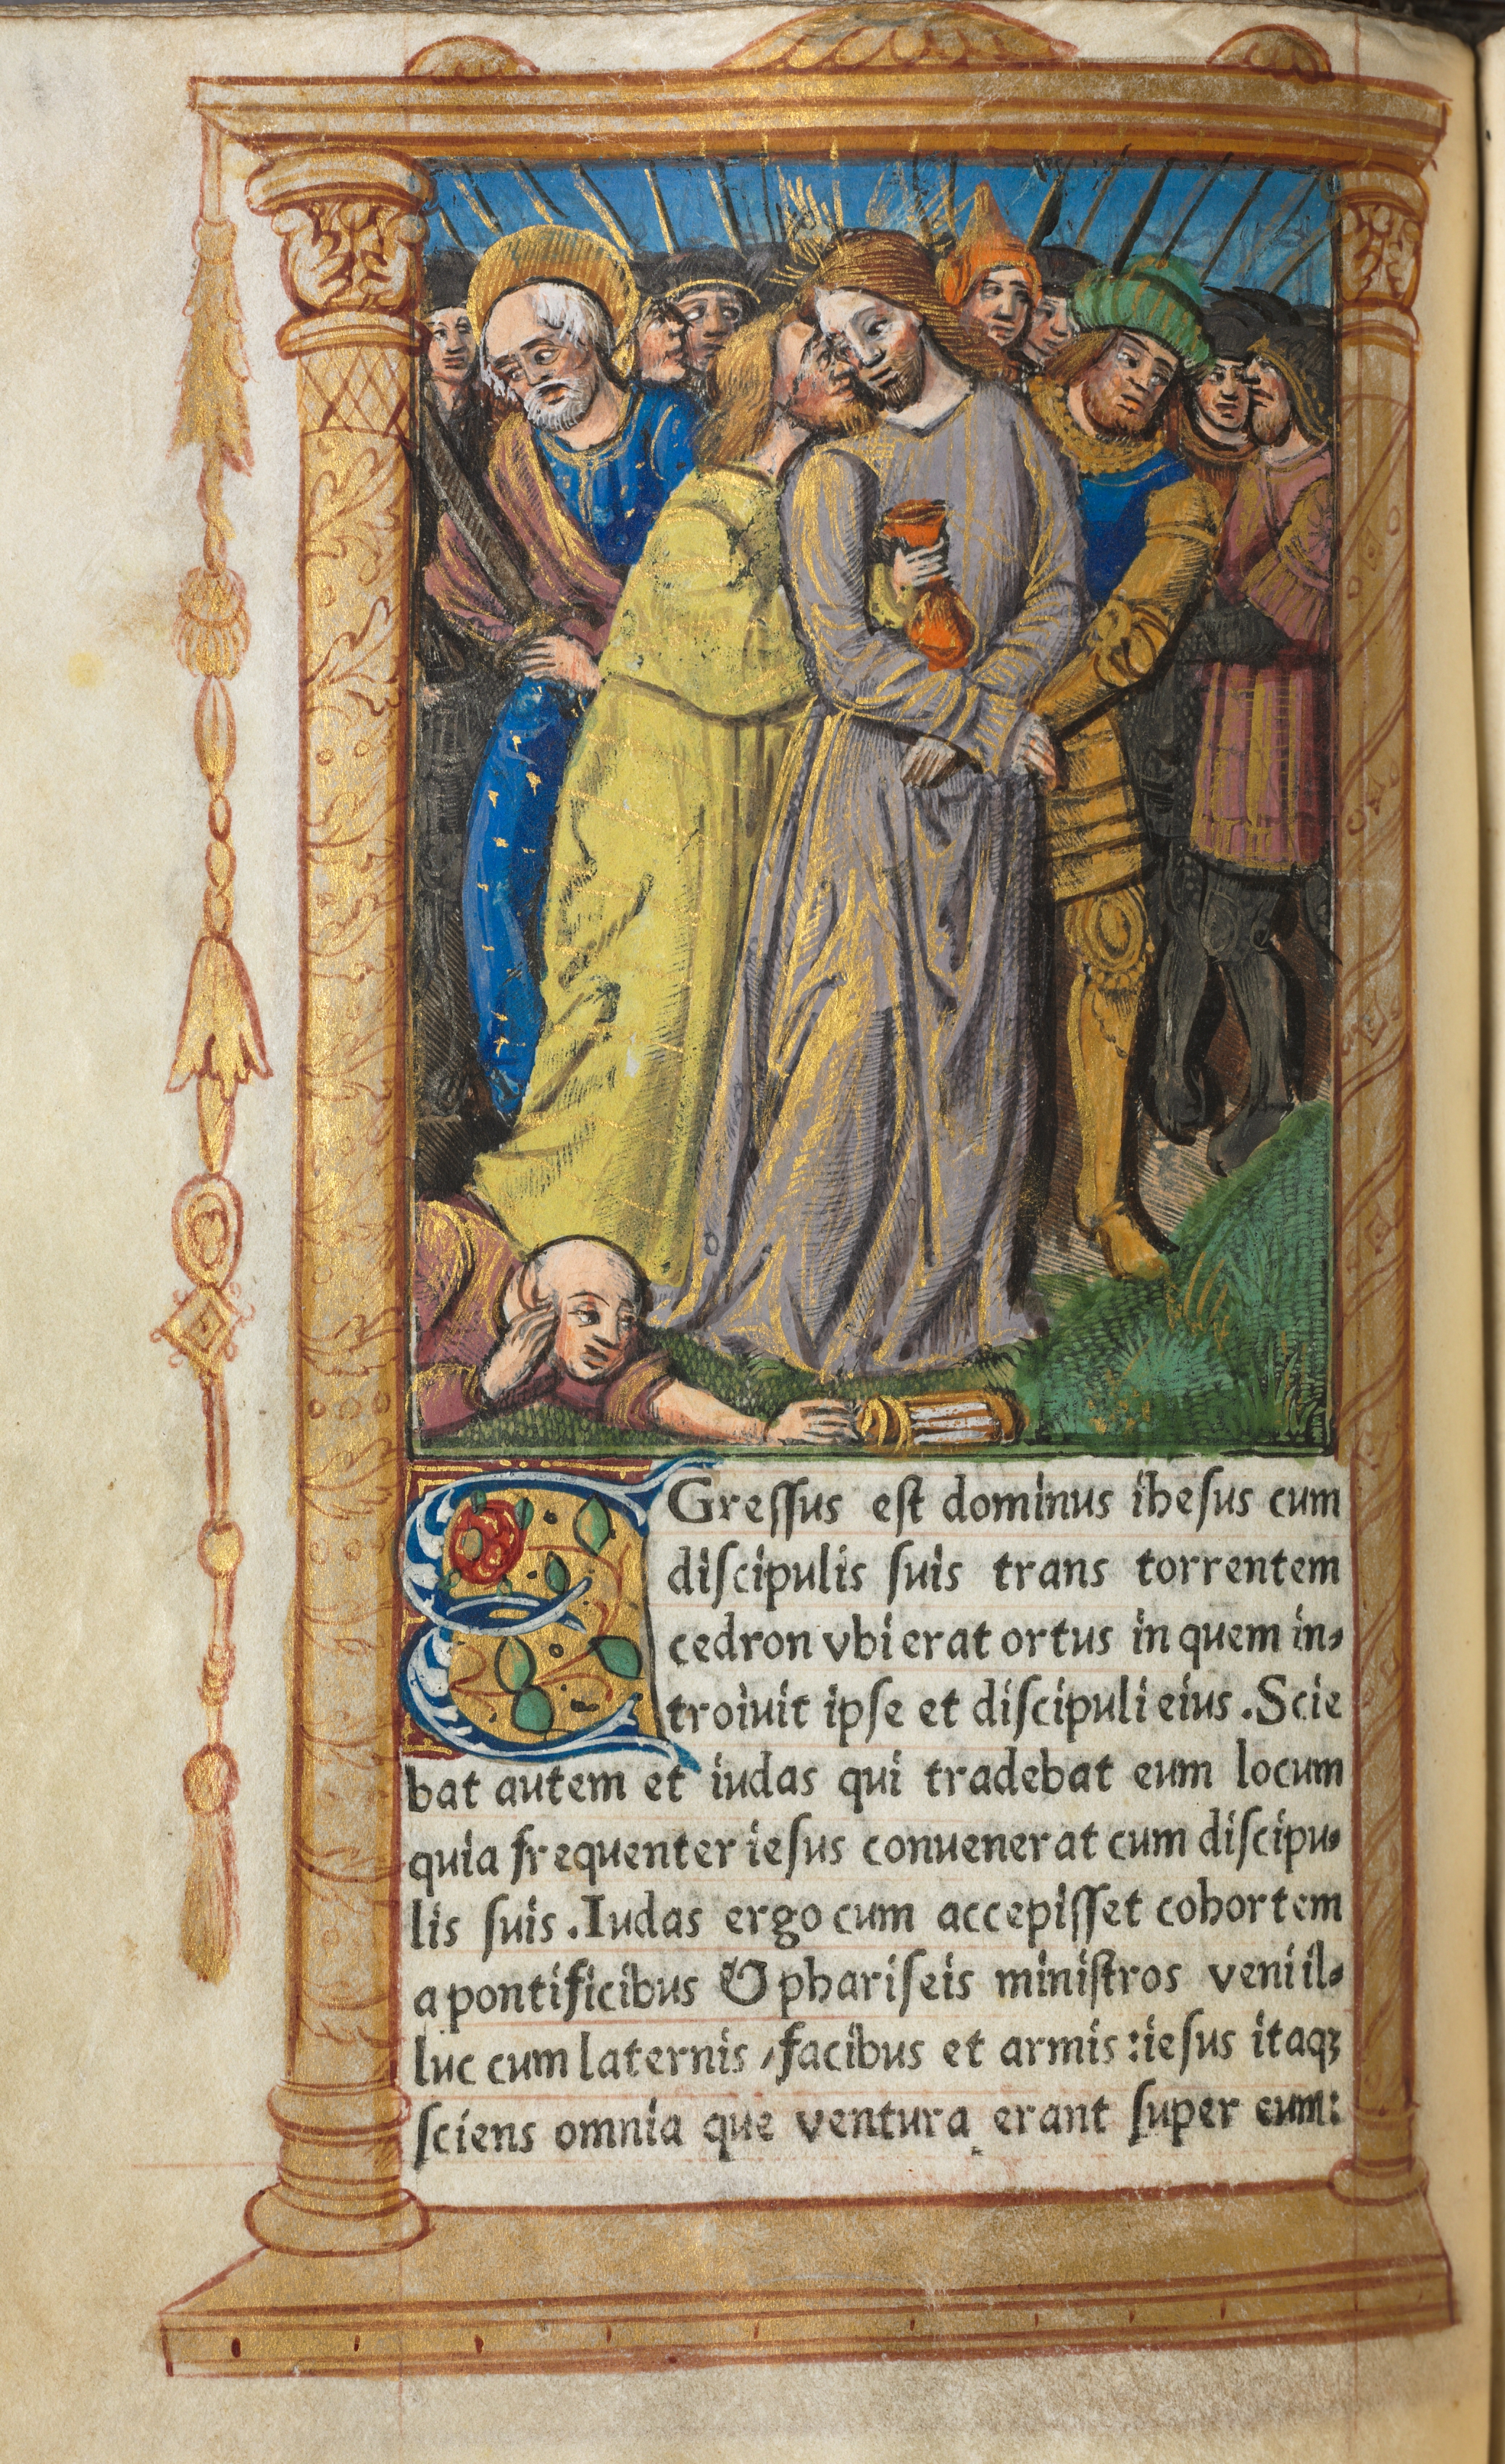 EGreſſus eſt dominus iheſus cum
diſcipulis ſuis trans torrentem
cedron vbi erat ortus in quem in⸗
troiuit ipſe et diſcipuli eius . Scie
bat autem et iudas qui tradebat eum locum
quia frequenter ieſus conuenerat cum diſcipu⸗
lis ſuis . Iudas ergo cum accepiſſet cohortem
a pontificibus & phariſeis miniſtros veni il⸗
luc cum laternis / facibus et armis : ieſus itaqꝫ
ſciens omnia que ventura erant ſuper eum: